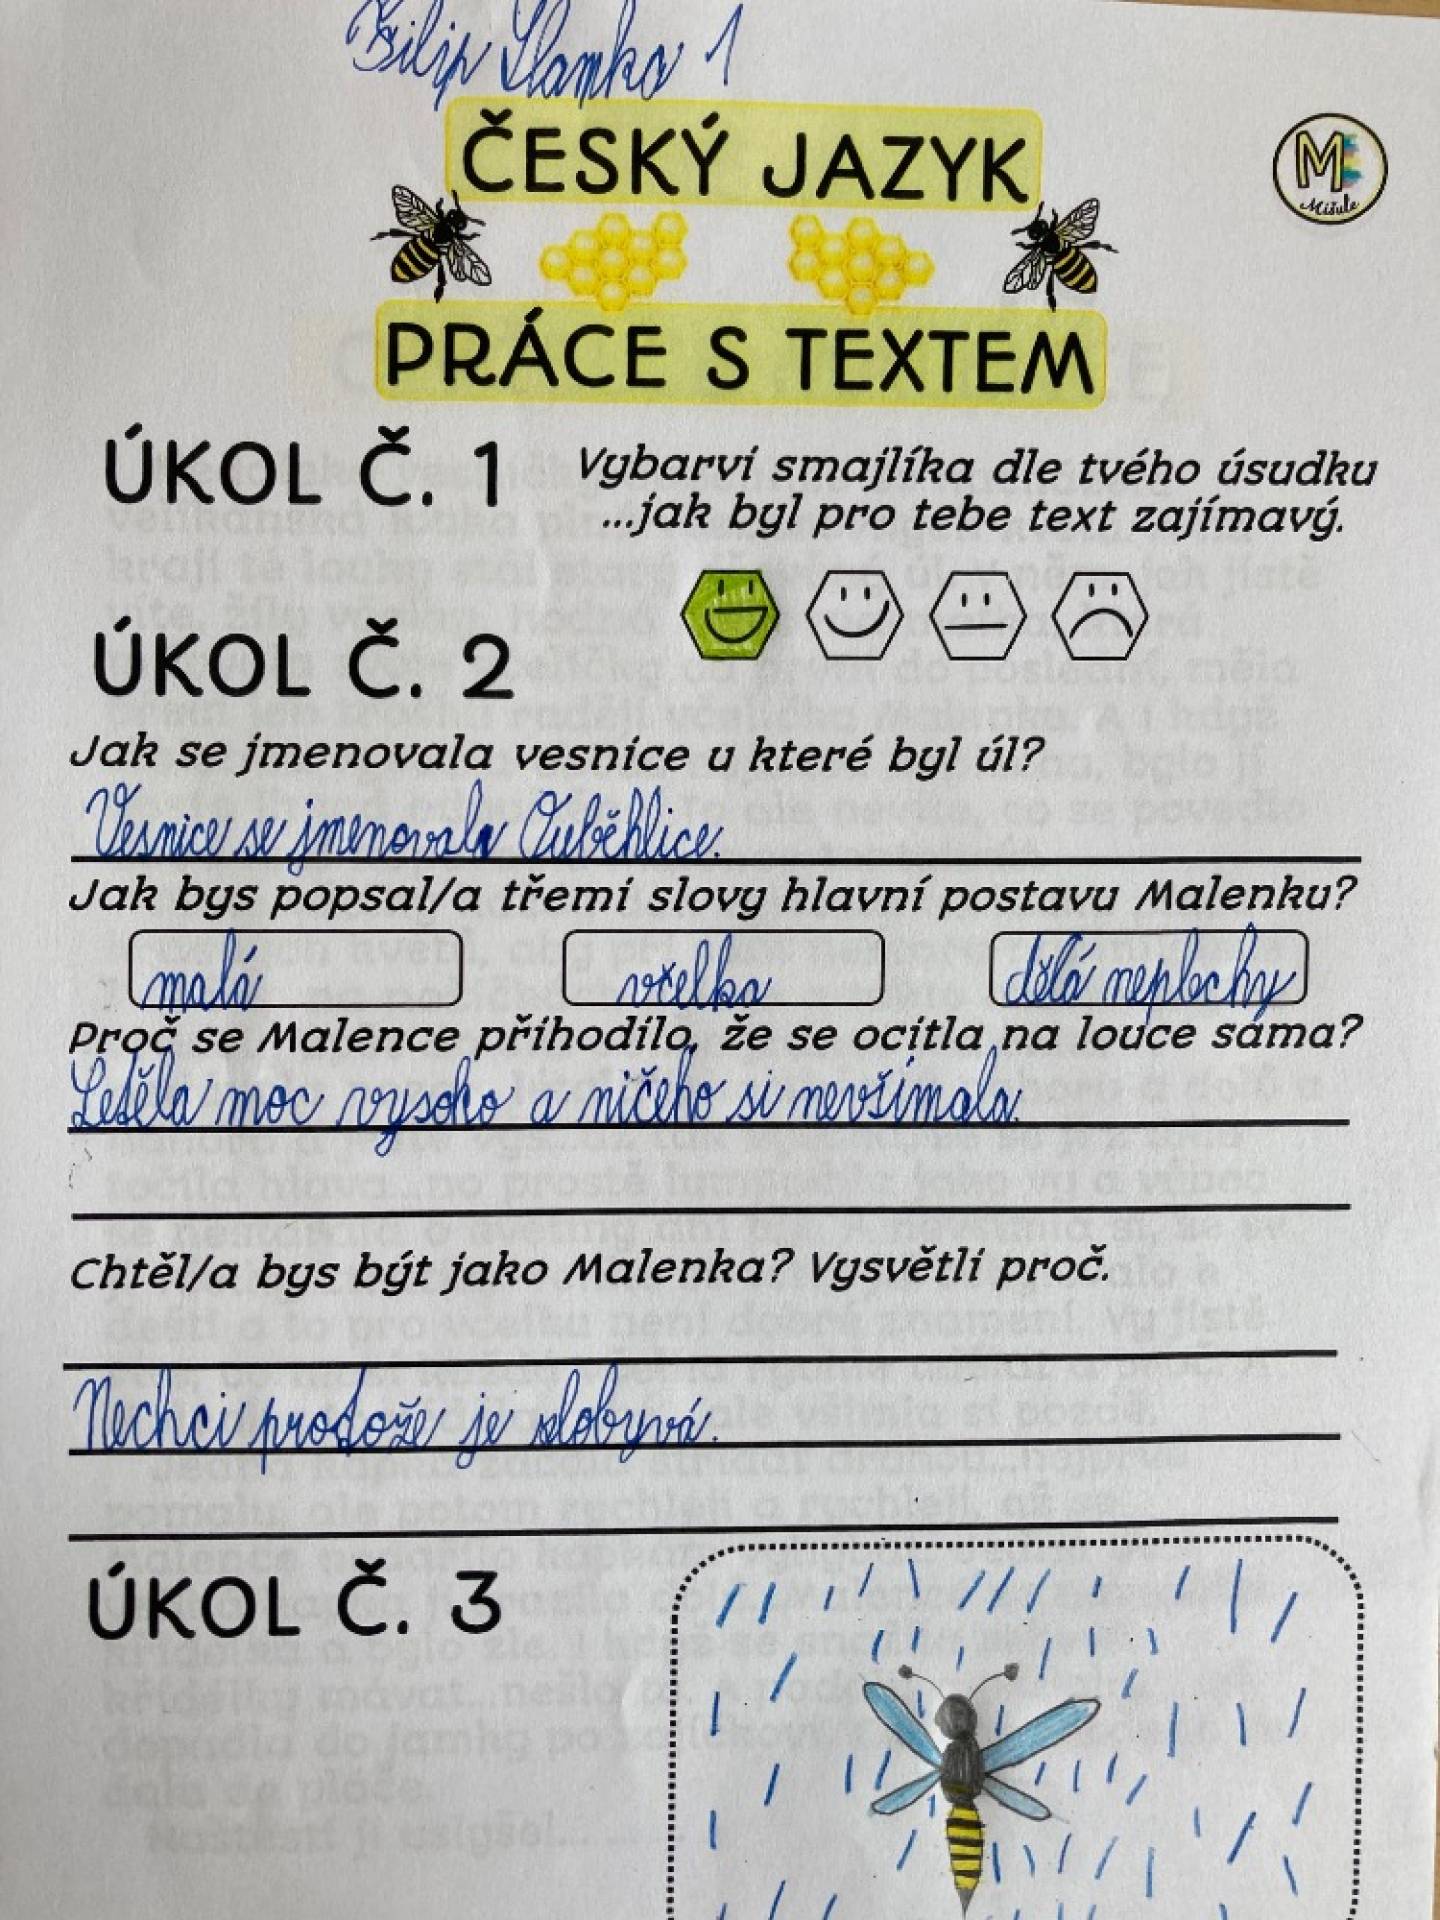 Filip Slamka 1
ČESKÝ JAZYK
M
Mišule
PRÁCE S TEXTEM
ÚKOL Č. 1
Vybarvi smajlíka dle tvého úsudku
...jak byl pro tebe text zajímavý.
ÚKOL Č. 2
Jak se jmenovala vesnice u které byl úl?
Vesnice se jmenovala
Jak bys popsal/a třemi slovy hlavní postavu Malenku?
malá včelka dělá neplechy
Proč se Malence přihodilo, že se ocitla na louce sama?
Letěla moc vysoko a ničeho si nevšímala.
Chtěl/a bys být jako Malenka? Vysvětli proč.
Nechci protože je
ÚKOL Č. 3